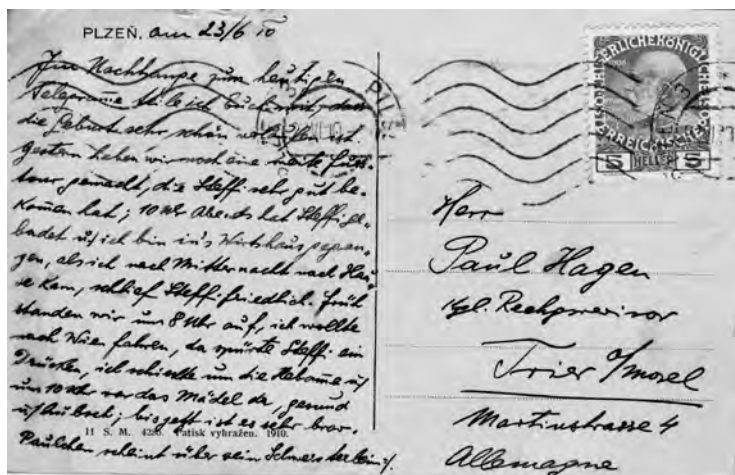 PLZEŇ, am 23/6 10
Im Nachhange zum heutigen
Telegramme teile ich Euch mit, dass
die Geburt sehr schön verlaufen ist.
Gestern haben wir noch eine weite
tour gemacht, die Steffi sehr gut be-
kommen hat; 10 Uhr Abends hat Steffi ge-
badet u/ ich bin in's Wirtshaus gegan-
gen, als ich nach Mitternacht nach Hau-
se kam, schlief Steffi friedlich. Früh
standen wir um 8 Uhr auf, ich wollte
nach Wien fahren, da spürte Steffi ein
Drücken, ich schickte um die Hebamme u/
um 10 Uhr war das Mädel da, gesund
u/ hübsch; bis jetzt ist es sehr brav.
11 S. M. Patisk vyhražen. 1910.
Paulchen scheint über sein Schwesterlein
KAISERLICHEKÖNIGLICHE ÖSTERREICHISCHE
5 HELLER 5
Herr
Paul Hagen
kgl.
Trier a/mosel
Martinstrasse 4
Allemagne